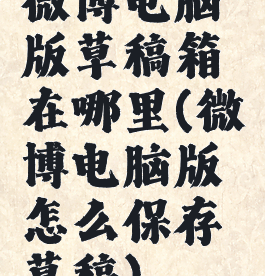 微博电脑
版草稿箱
在哪里(微
博电脑版
怎么保存
草稿)